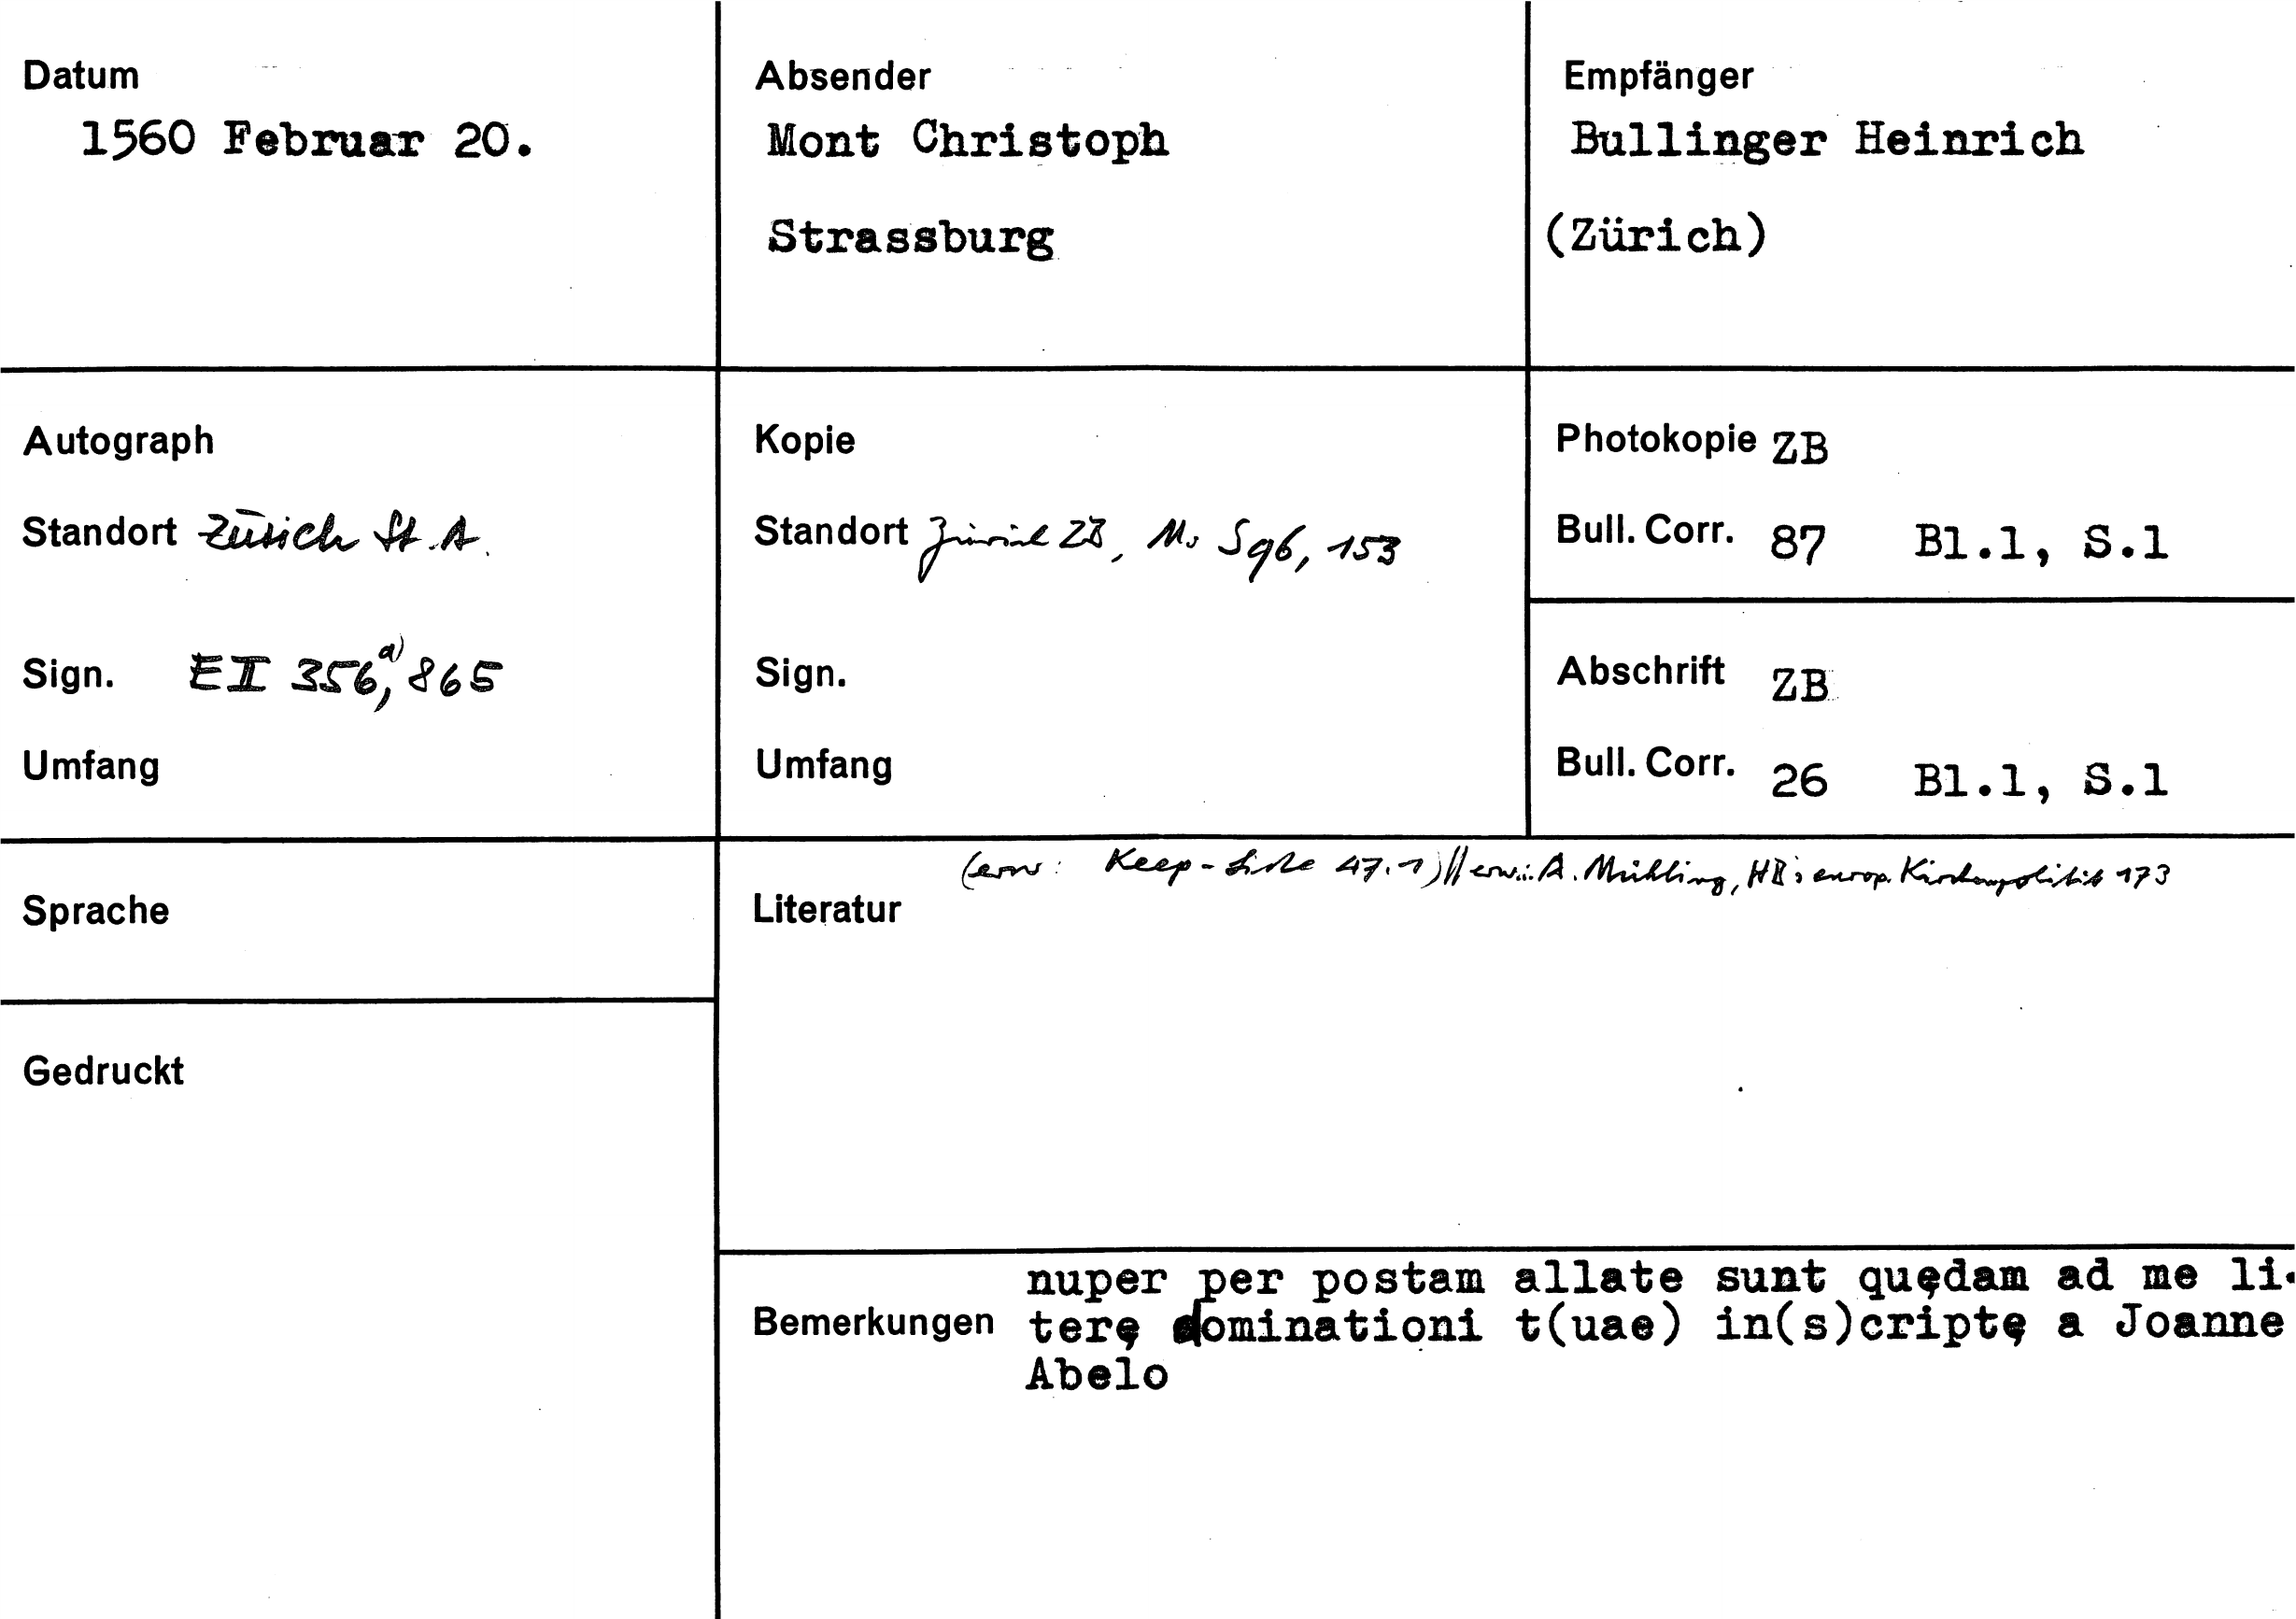 Datum
1560 Februar 20.
Absender
Mont Christoph
Strassburg
Empfänger
Bullinger Heinrich
(Zürich)
Autograph
Standort Zürich St.A.
Sign. E II 356a), 865
Umfang
Kopie
Standort Zürich ZB, Ms S 96, 153
Sign.
Umfang
Photokopie ZB
Bull. Corr. 87 Bl.1, S.1
Abschrift ZB
Bull. Corr. 26 Bl.1, S.1
Sprache
Gedruckt
(erw: Keep-Liste 47.1) // erw.: A. Mühling, HB's europ. Kirchenpolitik 173
Literatur
nuper per postam allate sunt quędam ad me li-
Bemerkungen terę dominationi t(uae) in(s)criptę a Joanne
Abelo